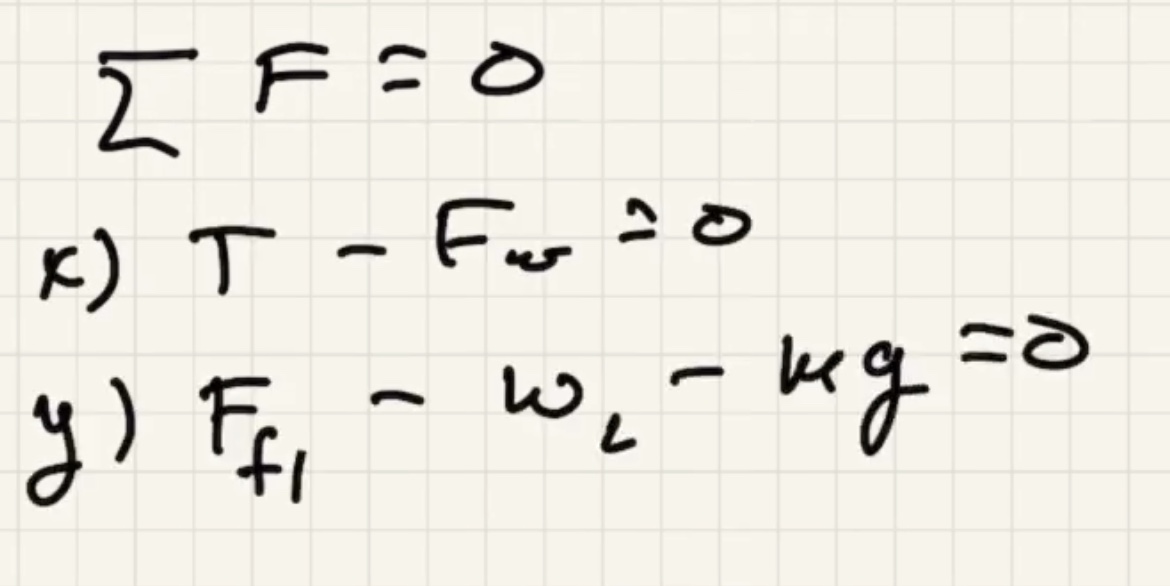 ∑ F = 0
x) T - F_w = 0
y) F_f1 - w_L - mg = 0